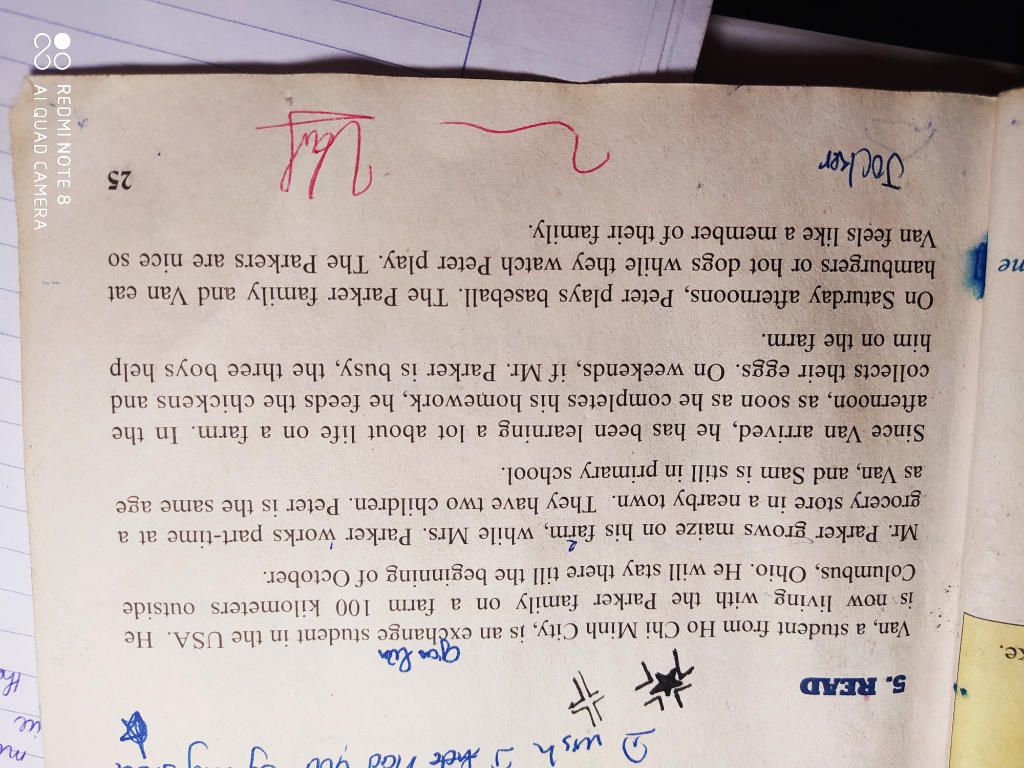 5. READ
Van, a student from Ho Chi Minh City, is an exchange student in the USA. He
is now living with the Parker family on a farm 100 kilometers outside
Columbus, Ohio. He will stay there till the beginning of October.
Mr. Parker grows maize on his farm, while Mrs. Parker works part-time at a
grocery store in a nearby town. They have two children. Peter is the same age
as Van, and Sam is still in primary school.
Since Van arrived, he has been learning a lot about life on a farm. In the
afternoon, as soon as he completes his homework, he feeds the chickens and
collects their eggs. On weekends, if Mr. Parker is busy, the three boys help
him on the farm.
On Saturday afternoons, Peter plays baseball. The Parker family and Van eat
hamburgers or hot dogs while they watch Peter play. The Parkers are nice so
Van feels like a member of their family.
Jocker
25
REDMI NOTE 8
AI QUAD CAMERA